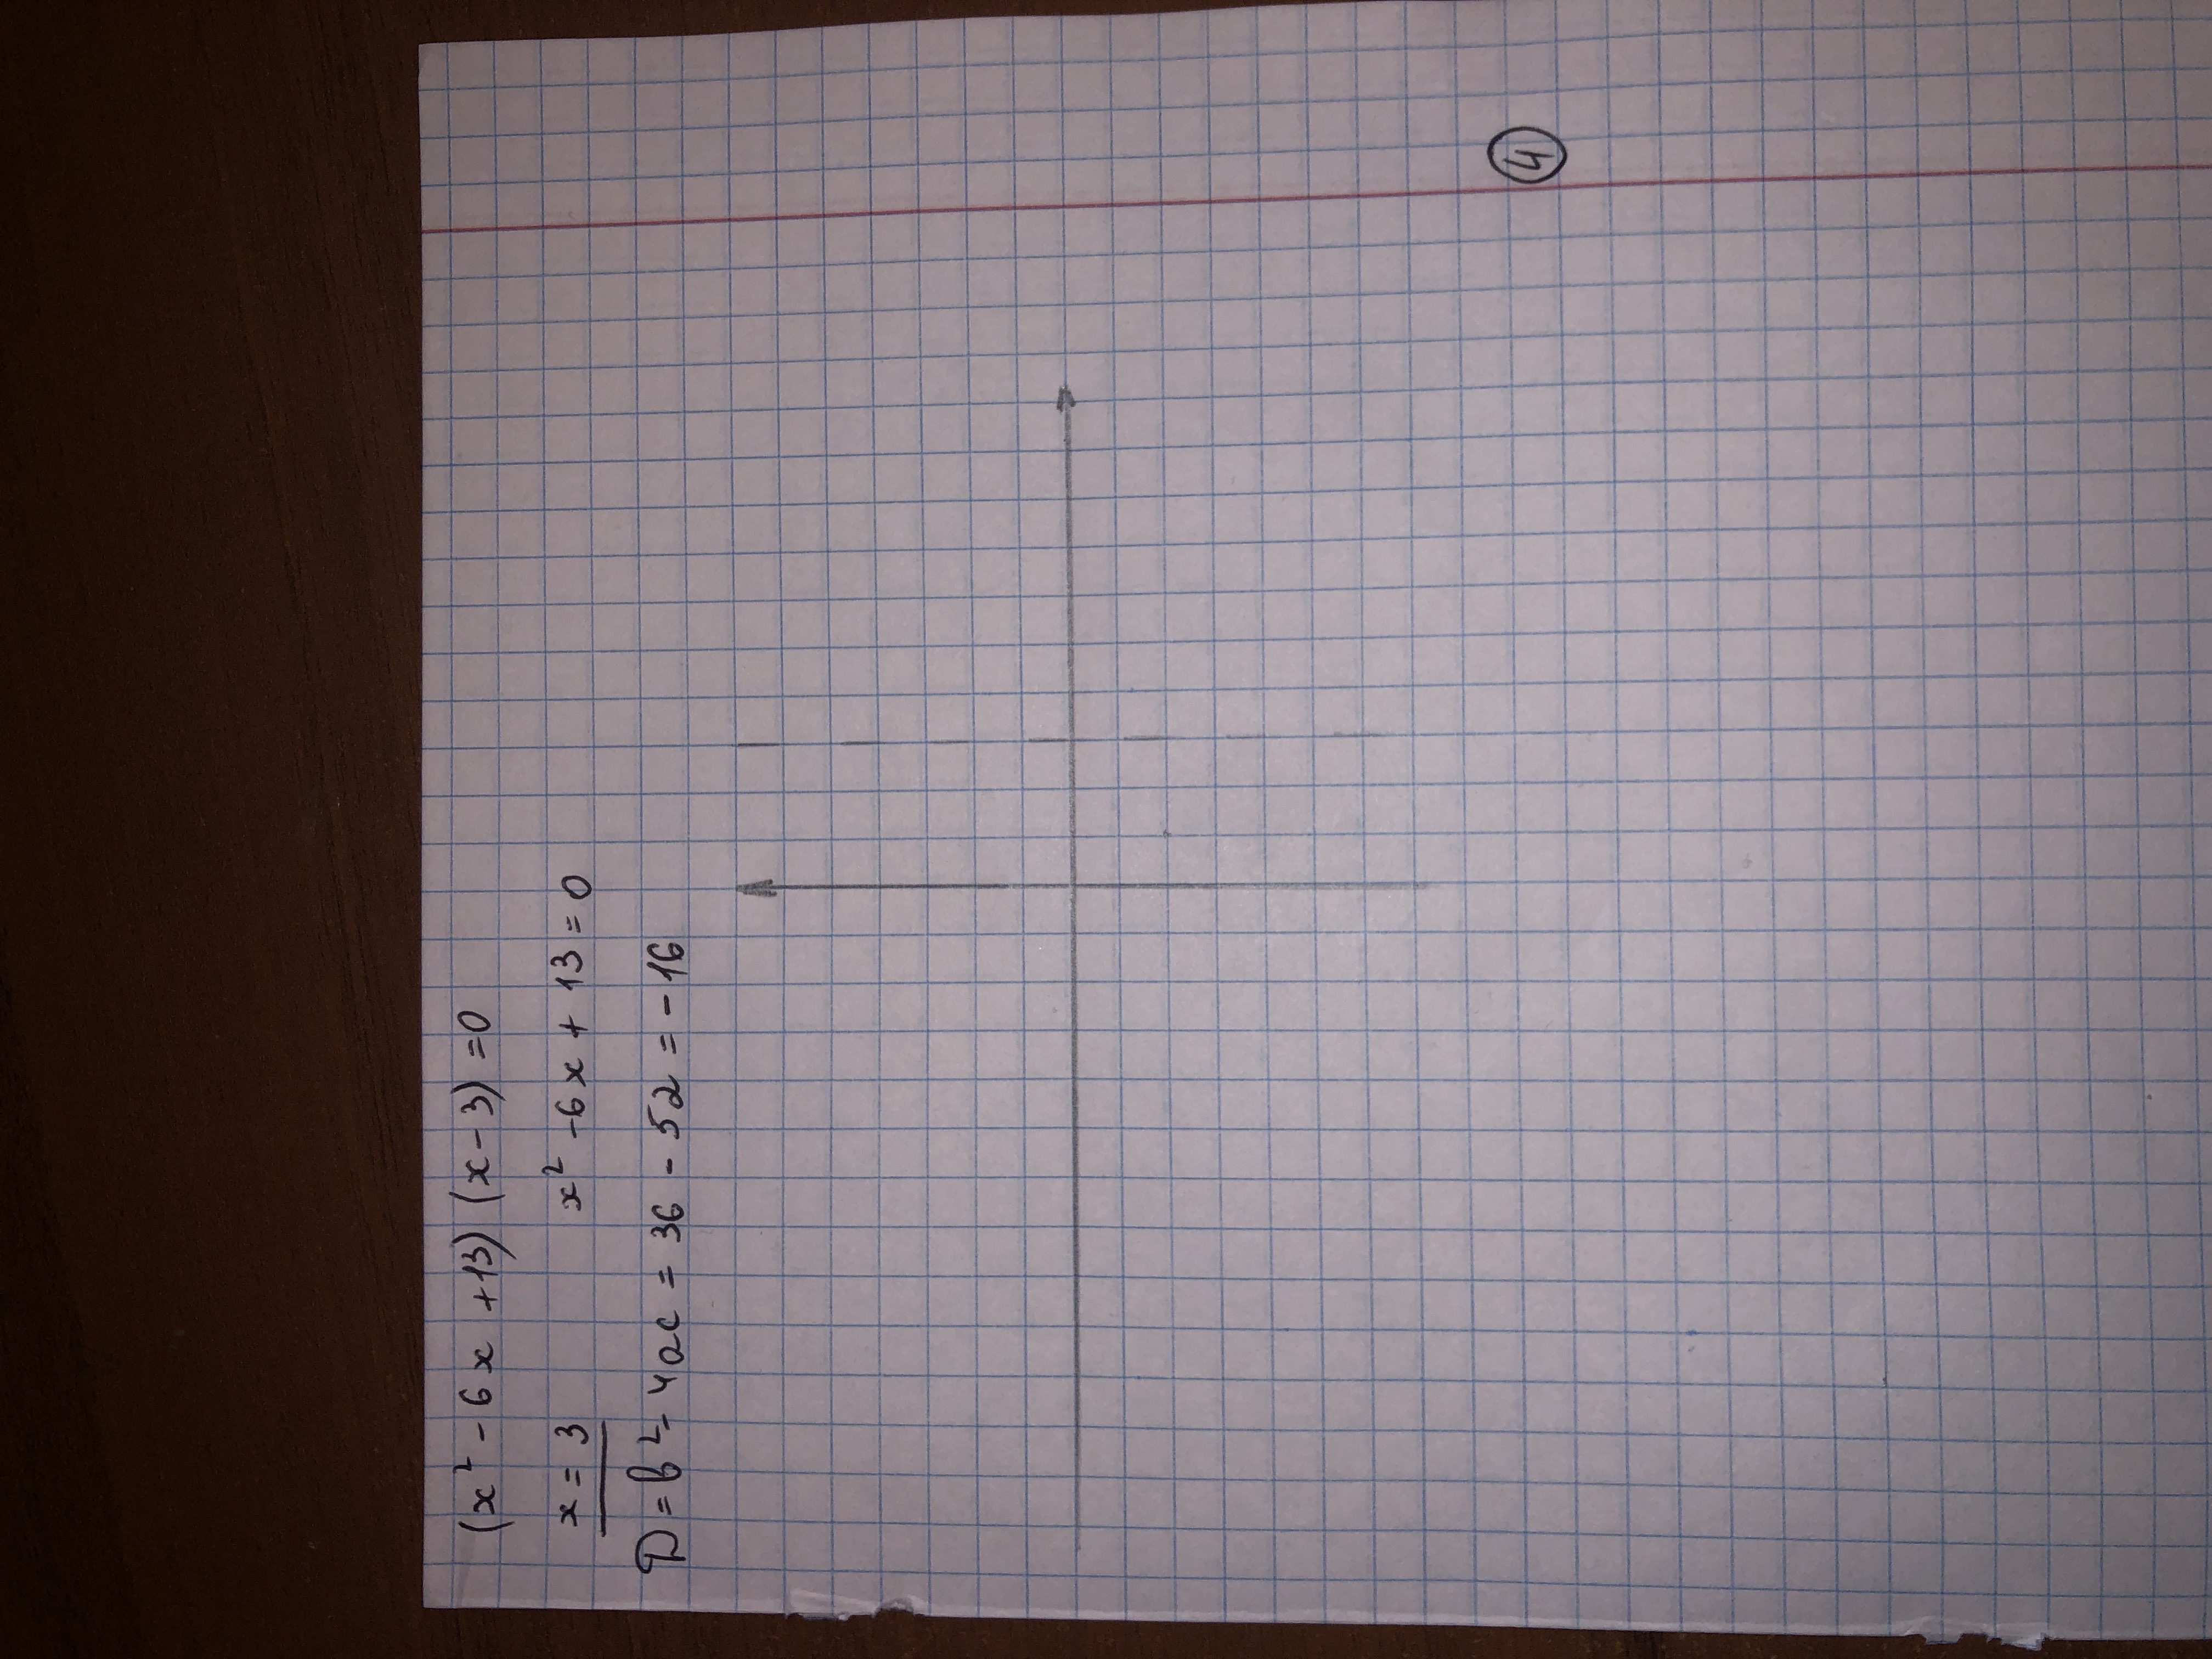 (x² - 6x + 13) (x - 3) = 0
x = 3 x² - 6x + 13 = 0
D = b² - 4ac = 36 - 52 = -16
4